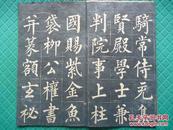 騎常侍充集
賢殿學士兼
判院事上柱
國賜紫金魚
袋柳公權書
并篆額玄秘